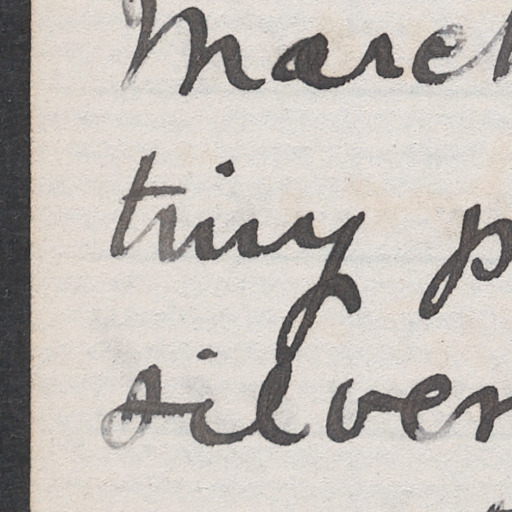 March
tiny p
silver